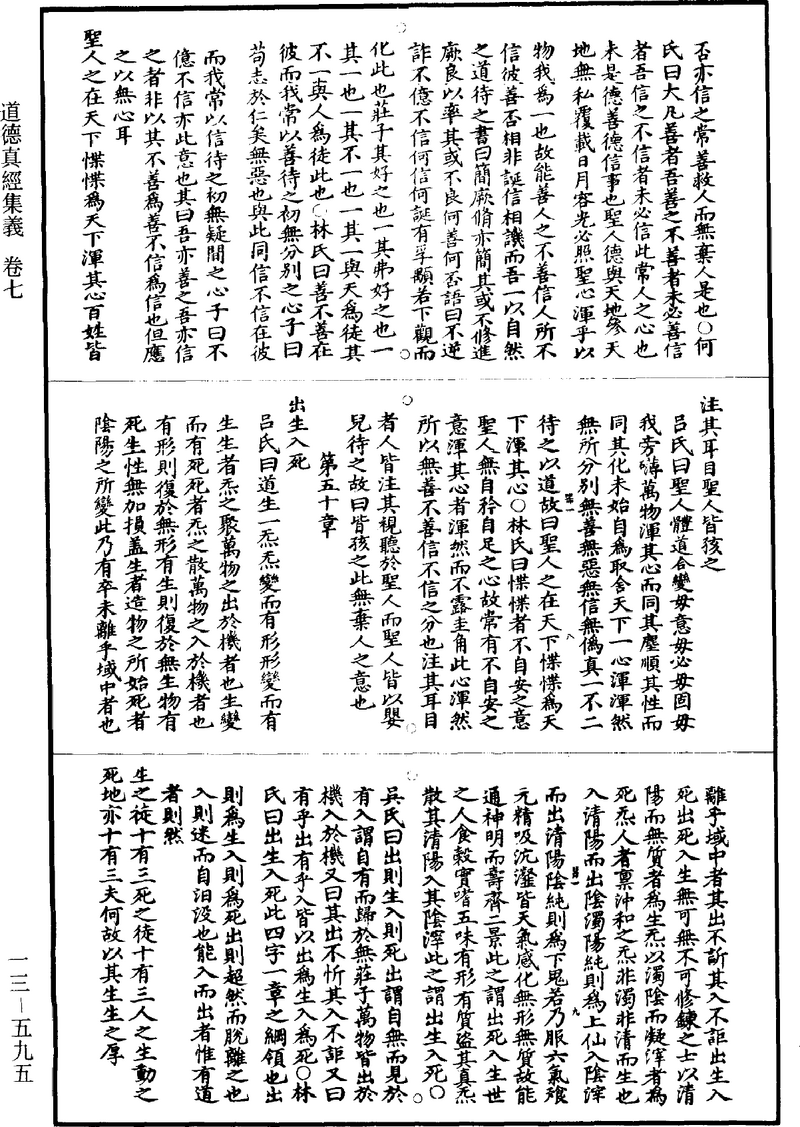 否亦信之常善救人而無棄人是也○何
氏曰大凡善者吾善之不善者未必善信
者吾信之不信者未必信此常人之心也
未是德善德信事也聖人德與天地參天
地無私覆載日月容光必照聖心渾乎以
物我為一也故能善人之不善信人所不
信彼善否相非誕信相譏而吾一以自然
之道待之書曰簡厥脩亦簡其或不修進
厥良以率其或不良何善何否語曰不逆
詐不億不信何信何誕有孚顒若下觀而
化此也莊子其好之也一其弗好之也一
其一也一其不一也一其一與天為徒其
不一與人為徒此也○林氏曰善不善在
彼而我常以善待之初無分別之心子曰
苟志於仁矣無惡也與此同信不信在彼
而我常以信待之初無疑間之心子曰不
億不信亦此意也其曰吾亦善之吾亦信
之者非以其不善為善不信為信也但應
之以無心耳
聖人之在天下惵惵為天下渾其心百姓皆
注其耳目聖人皆孩之
呂氏曰聖人體道合變毋意毋必毋固毋
我旁礴萬物渾其心而同其塵順其性而
同其化未始自為取舍天下一心渾渾然
無所分別無善無惡無信無偽真一不二
待之以道故曰聖人之在天下惵惵為天
下渾其心○林氏曰惵惵者不自安之意
聖人無自矜自足之心故常有不自安之
意渾其心者渾然而不露圭角此心渾然
所以無善不善信不信之分也注其耳目
者人皆注其視聽於聖人而聖人皆以嬰
兒待之故曰皆孩之此無棄人之意也
第五十章
出生入死
呂氏曰道生一炁炁變而有形形變而有
生生者炁之聚萬物之出於機者也生變
而有死死者炁之散萬物之入於機者也
有形則復於無形有生則復於無生物有
死生性無加損蓋生者造物之所始死者
陰陽之所變此乃有卒未離乎域中者也
離乎域中者其出不訢其入不詎出生入
死出死入生無可無不可修鍊之士以清
陽而無質者為生炁以濁陰而凝滓者為
死炁人者稟沖和之炁非濁非清而生也
入清陽而出陰濁陽純則為上仙入陰滓
而出清陽陰純則為下鬼若乃服六氣飱
元精吸沆瀣皆天氣感化無形無質故能
通神明而壽齊二景此之謂出死入生世
之人食穀實嗜五味有形有質盜其真炁
散其清陽入其陰滓此之謂出生入死○
吳氏曰出則生入則死出謂自無而見於
有入謂自有而歸於無莊子萬物皆出於
機入於機又曰其出不忻其入不詎又曰
有乎出有乎入皆以出為生入為死○林
氏曰出生入死此四字一章之綱領也出
則為生入則為死出則超然而脫離之也
入則迷而自汨沒也能入而出者惟有道
者則然
生之徒十有三死之徒十有三人之生動之
死地亦十有三夫何故以其生生之厚
道德真經集義 卷七
一三－五九五